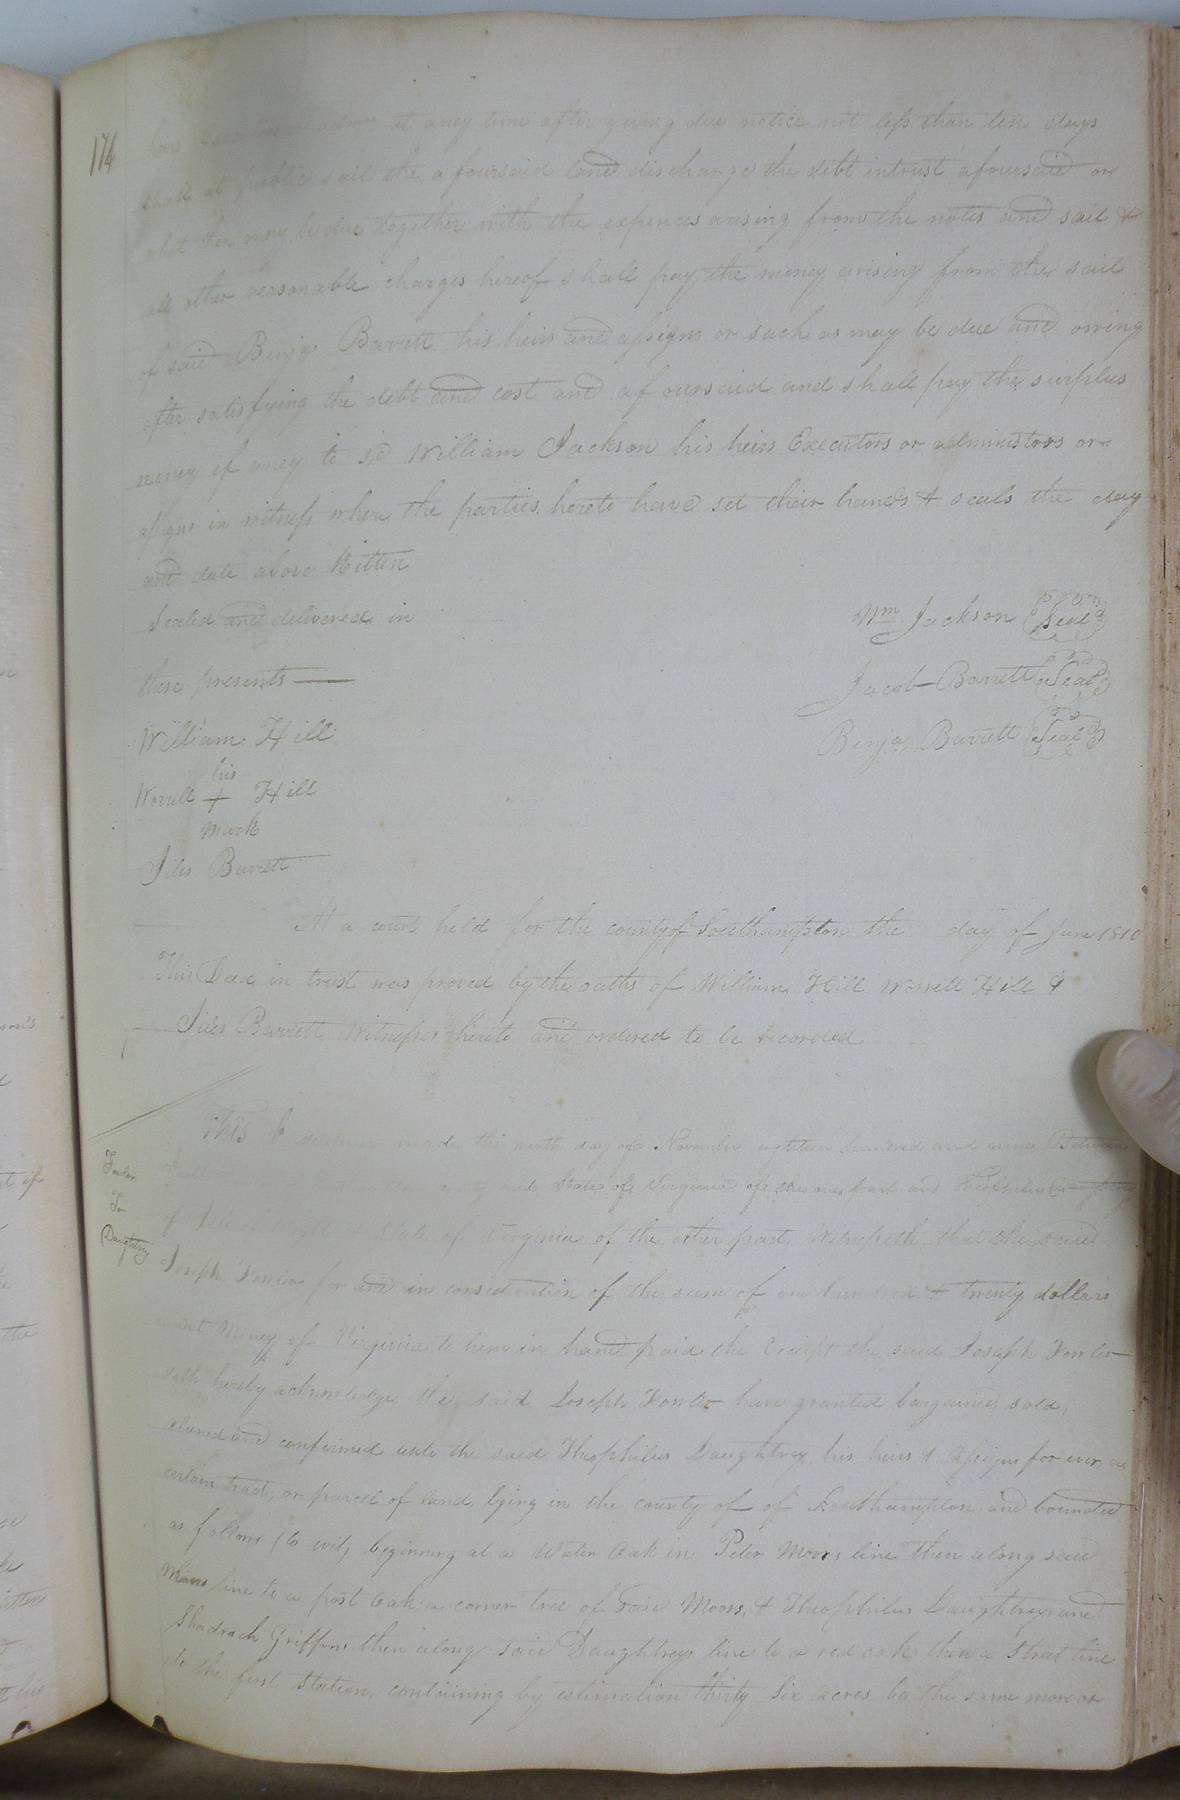 174
at aney time after giveing due notice not less than ten days
shall at publick sail the a foursaid land discharge the debt intrust afoursaid or
what then may be due together with the expences arising from the notes and sail &
all other reasonable charges hereof shall pay the money arising from the sail
of said Benja. Barrett his heirs and assigns or such as may be due and owing
after satisfying the debt and cost and afoursaid and shall pay the surplus
money if aney to sd William Jackson his heirs Executors or administors or
assigns in witness where the parties hereto have set their hands & seals the day
and date above Ritten
Sealed and delivered in
these presents
Wm Jackson Seal
Jacob Barrett Seal
Benja Barrett Seal
William Hill
his
Worrell + Hill
mark
Jiles Barrett
At a court held for the county of Southampton the day of June 1810
This Deed in trust was proved by the oaths of William Hill Worrell Hill &
Jiles Barrett Witnesses hereto and ordered to be recorded
Fowler
To
Daughtrey
This made this ninth day of November eighteen hundred and nine Between
county and State of Virginia of the one part and Theophilus Daughtrey
of State of Virginia of the other part Witnesseth that the said
Joseph Fowler for and in consideration of the sum of one hundred & twenty dollars
Money of Virginia to him in hand paid the receipt the said Joseph Fowler
doth hereby acknowledge, the said Joseph Fowler have granted bargained sold,
and confirmed unto the said Theophilus Daughtrey his heirs & assigns for ever, a
certain tract, or parcel of land lying in the county of of Southampton and bounded
as follows (to wit, beginning at a Water Oak in Peter Moors line then along said
Moors line to a post Oak a corner tree of said Moors, & Theophilus Daughtreys and
Shadrach Griffins then along said Daughtreys line to a red oak then a strait line
to the first Station, containing by estimation thirty Six acres be the same more or